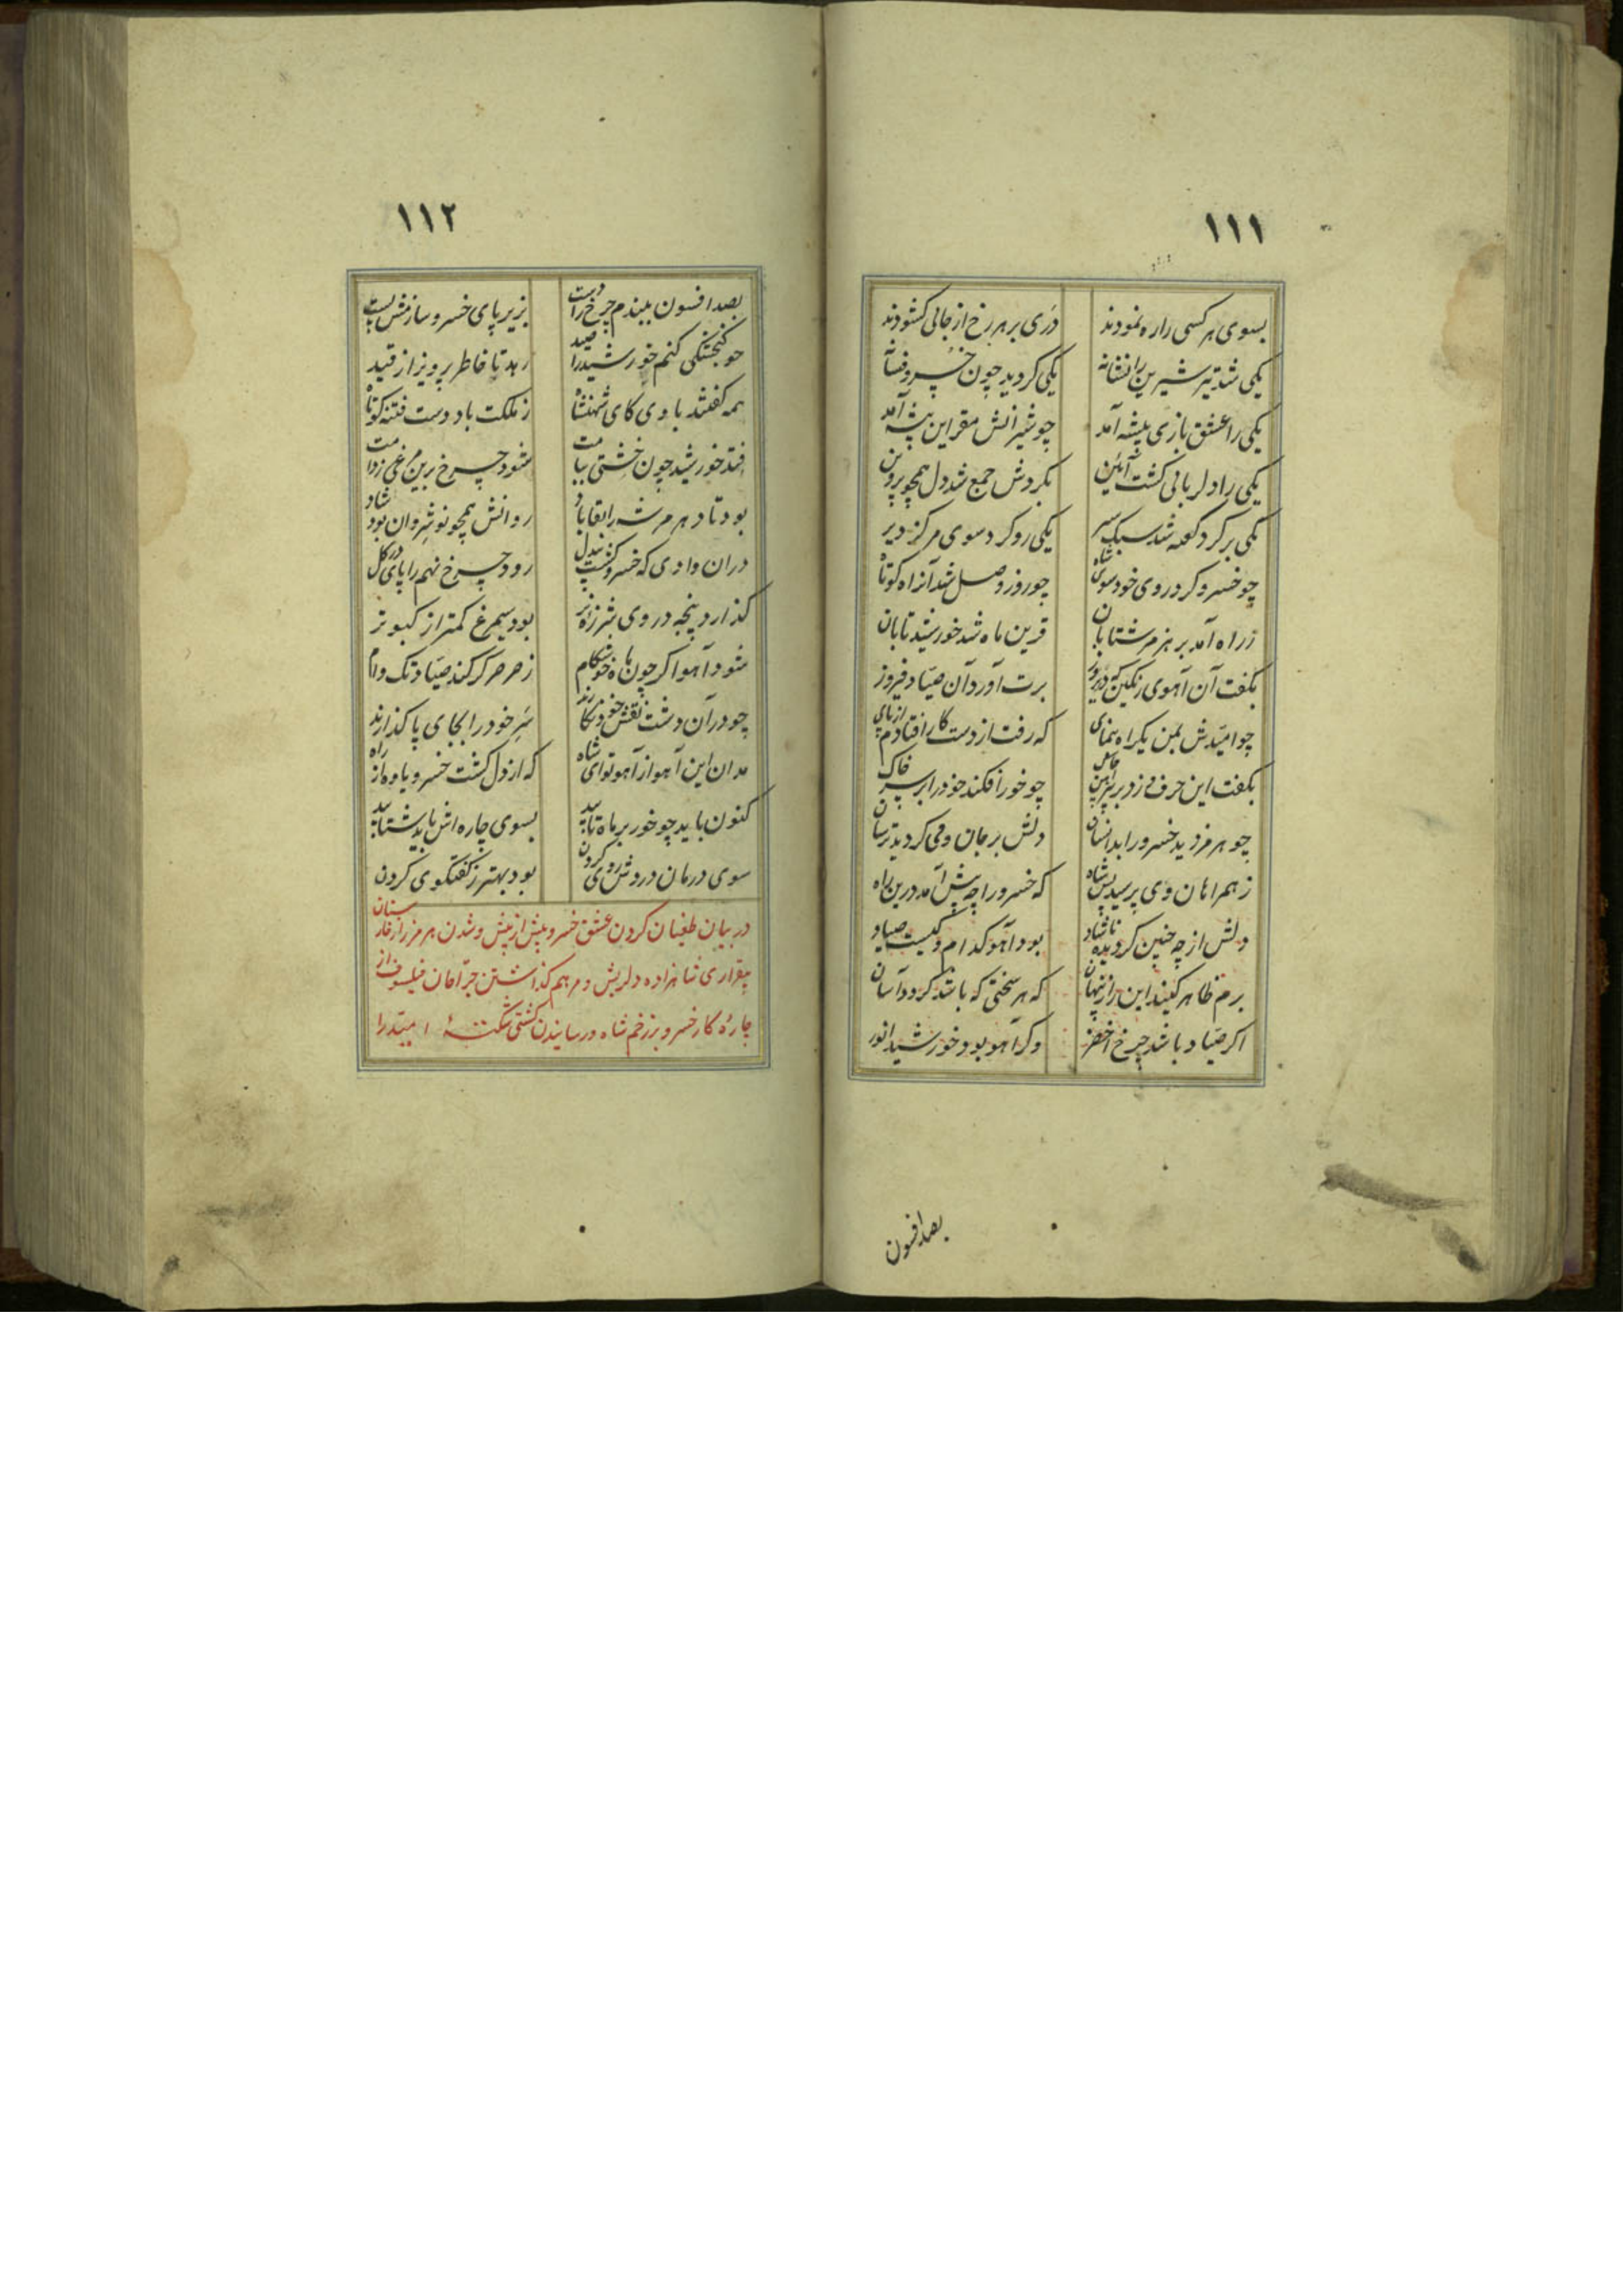 ١١١
بسوی هر کسی را ره نمودند دری بر هر رخ از جائی کشودند
یکی شد تیر شیرین را نشانه یکی کردید چون خسرو فسانه
یکی را عشق بازی پیشه آمد چو شیرانش مقر این بیشه آمد
یکی را دلربائی کشت آئین بکردش جمع شد دل همچو پروین
یکی بر کرد کعبه شد سبک سیر یکی رو کرد سوی مرکز دیر
چو خسرو کرد روی خود سوی شاه چو روز وصل شد آنراه کوتاه
ز راه آمد بر هرمز شتابان قرین ماه شد خورشید تابان
بگفت آن آهوی رنکین که دیروز برت آورد آن صیاد فیروز
چو امیدش بمن یکراه ننمای که رفت از دست کار افتادم از پای
بکفت این حرف و زد بر پیرهن چاک چو خور افکند خود را بر سر خاک
چو هرمز دید خسرو را بدانسان دلش بر جان وی کردید ترسان
ز همراهان وی پرسید پس شاه که خسرو را چه پیش آمد درین راه
دلش از چه چنین کردیده ناشاد بود آهو کدام و کیست صیاد
برم ظاهر کنید این راز پنهان که هر سختی که باشد کردد آسان
اکر صیاد باشد چرخ اخضر وکر آهو بود خورشید انور
بصد افسون
١١٢
بصد افسون ببندم چرخ را دست بزیر پای خسرو سازمش پست
چو کنجشکی کنم خورشید را صید رهد تا خاطر پرویز از قید
همه کفتند با وی کای شهنشاه ز ملکت باد دست فتنه کوتاه
فتد خورشید چون خشتی ببامت شود چرخ برین مرغی ز دامت
بود تا دهر هرمز شه را بقا باد روانش همچو نوشروان بود شاد
دران وادی که خسرو کشت بیدل رود چرخ نهم را پای در کل
کذارد پنجه در وی شرزه شیر بود سیمرغ کمتر از کبوتر
شود آهو اکر چون ماه خوشکام ز صرصر کر کند صیاد تک وام
چو در آن دشت نقش خود نکارند سر خود را بجای پا کذارند
مدان این آهو از آهو تو ای شاه که از دل کشت خسرو یاوه از راه
کنون باید چو خور بر ماه تابید بسوی چاره اش باید شتابید
سوی درمان دردش روی کردن بود بهتر ز کفتکوی کردن
در بیان طغیان کردن عشق خسرو بیش از پیش و شدن هرمز از خارستان
بیقراری شاهزاده دلریش و مرهم کذاشتن جراحان فیلسوف از
چاره کار خسرو بر زخم شاه و رسانیدن کشتی شکسته امید را